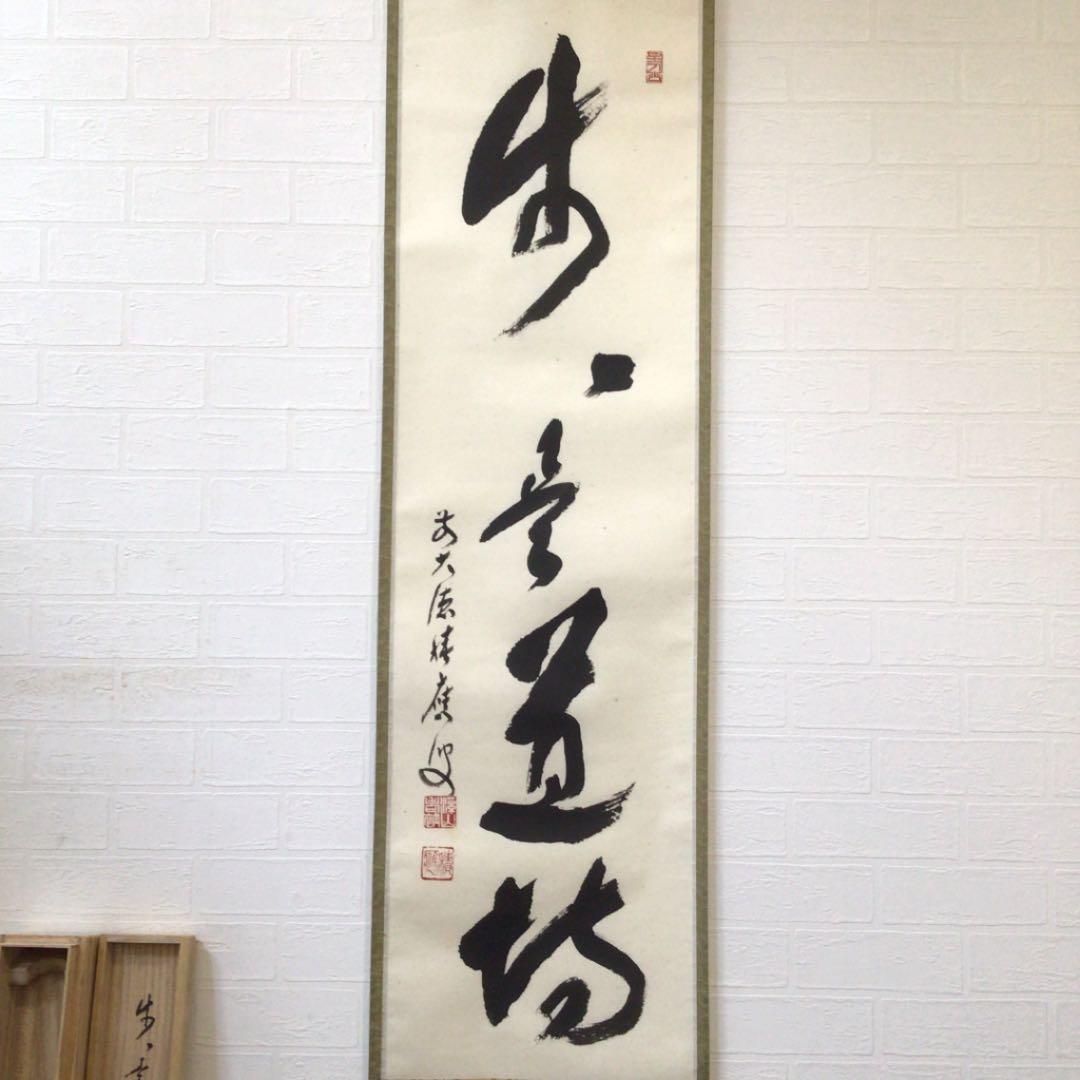 歩々是道場
前大徳晴應叟
歩々是